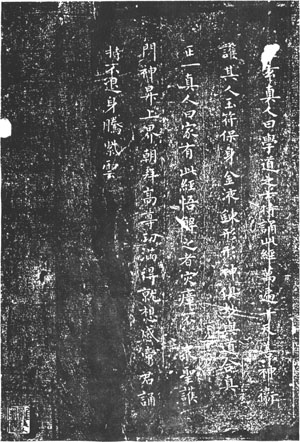 玄真人曰學道之士持誦此經萬遍十天善神衛
護其人玉符保身金液鍊形形神俱妙與道合真
正一真人曰家有此經悟解之者灾障不衆聖護
門神昇上界朝拜高尊功滿得就想感帝君誦
持不退身騰紫雲